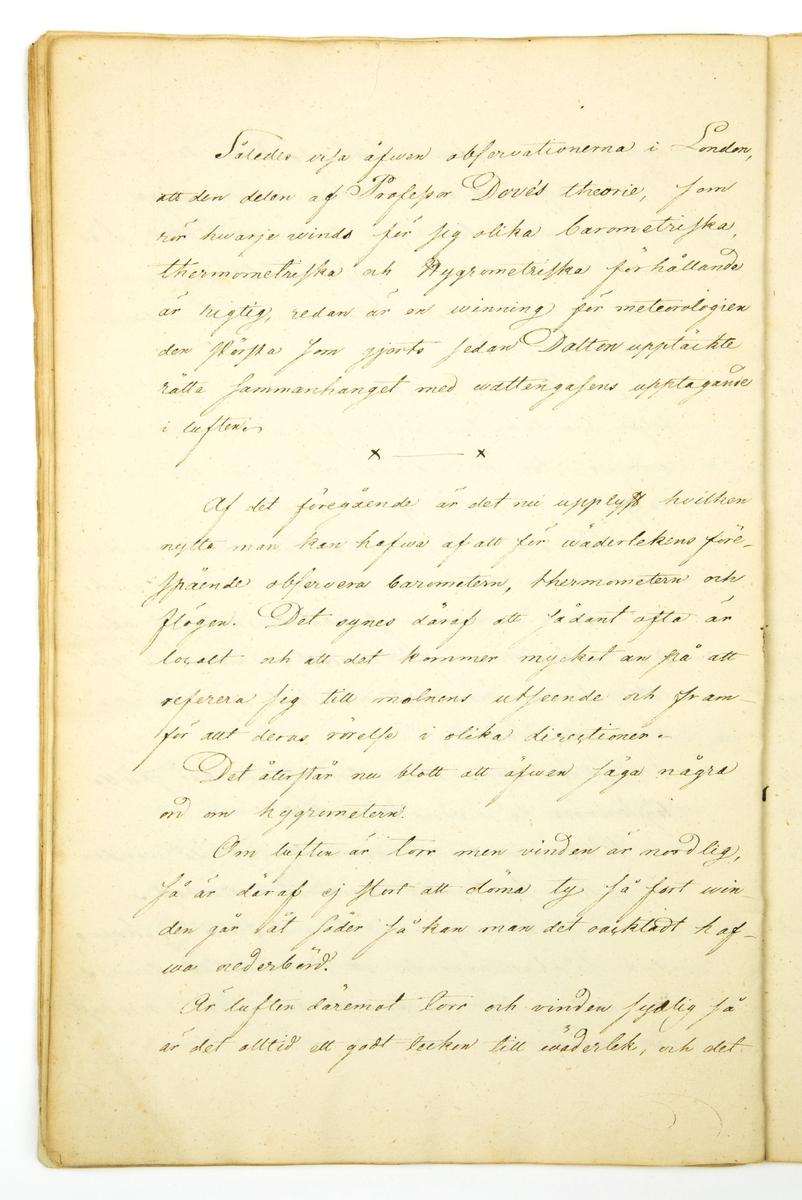 Således visa äfwen observationerna i London,
att den delen af Professor Dove's theorie, som
rör hwarje winds för sig olika barometriska,
thermometriska och Hygrometriska förhållande
är rigtig, redan är en winning för meteorologien
den största som gjorts sedan Dalton upptäckte
rätta sammanhanget med wattengasens upptagande
i luften.
x — x
Af det föregående är det nu upplyst hvilken
nytta man kan hafwa af att för wäderlekens före-
spående observera barometern, thermometern och
flögen. Det synes däraf att sådant ofta är
localt och att det kommer mycket an på att
referera sig till molnens utseende och fram-
för allt deras rörelse i olika directioner.
Det återstår nu blott att äfwen säga några
ord om hygrometern.
Om luften är torr men vinden är nordlig,
så är däraf ej stort att döma ty så fort win-
den går åt söder så kan man det oacktadt haf-
wa nederbörd.
Är luften däremot torr och vinden sydlig så
är det alltid ett godt tecken till wäderlek, och det